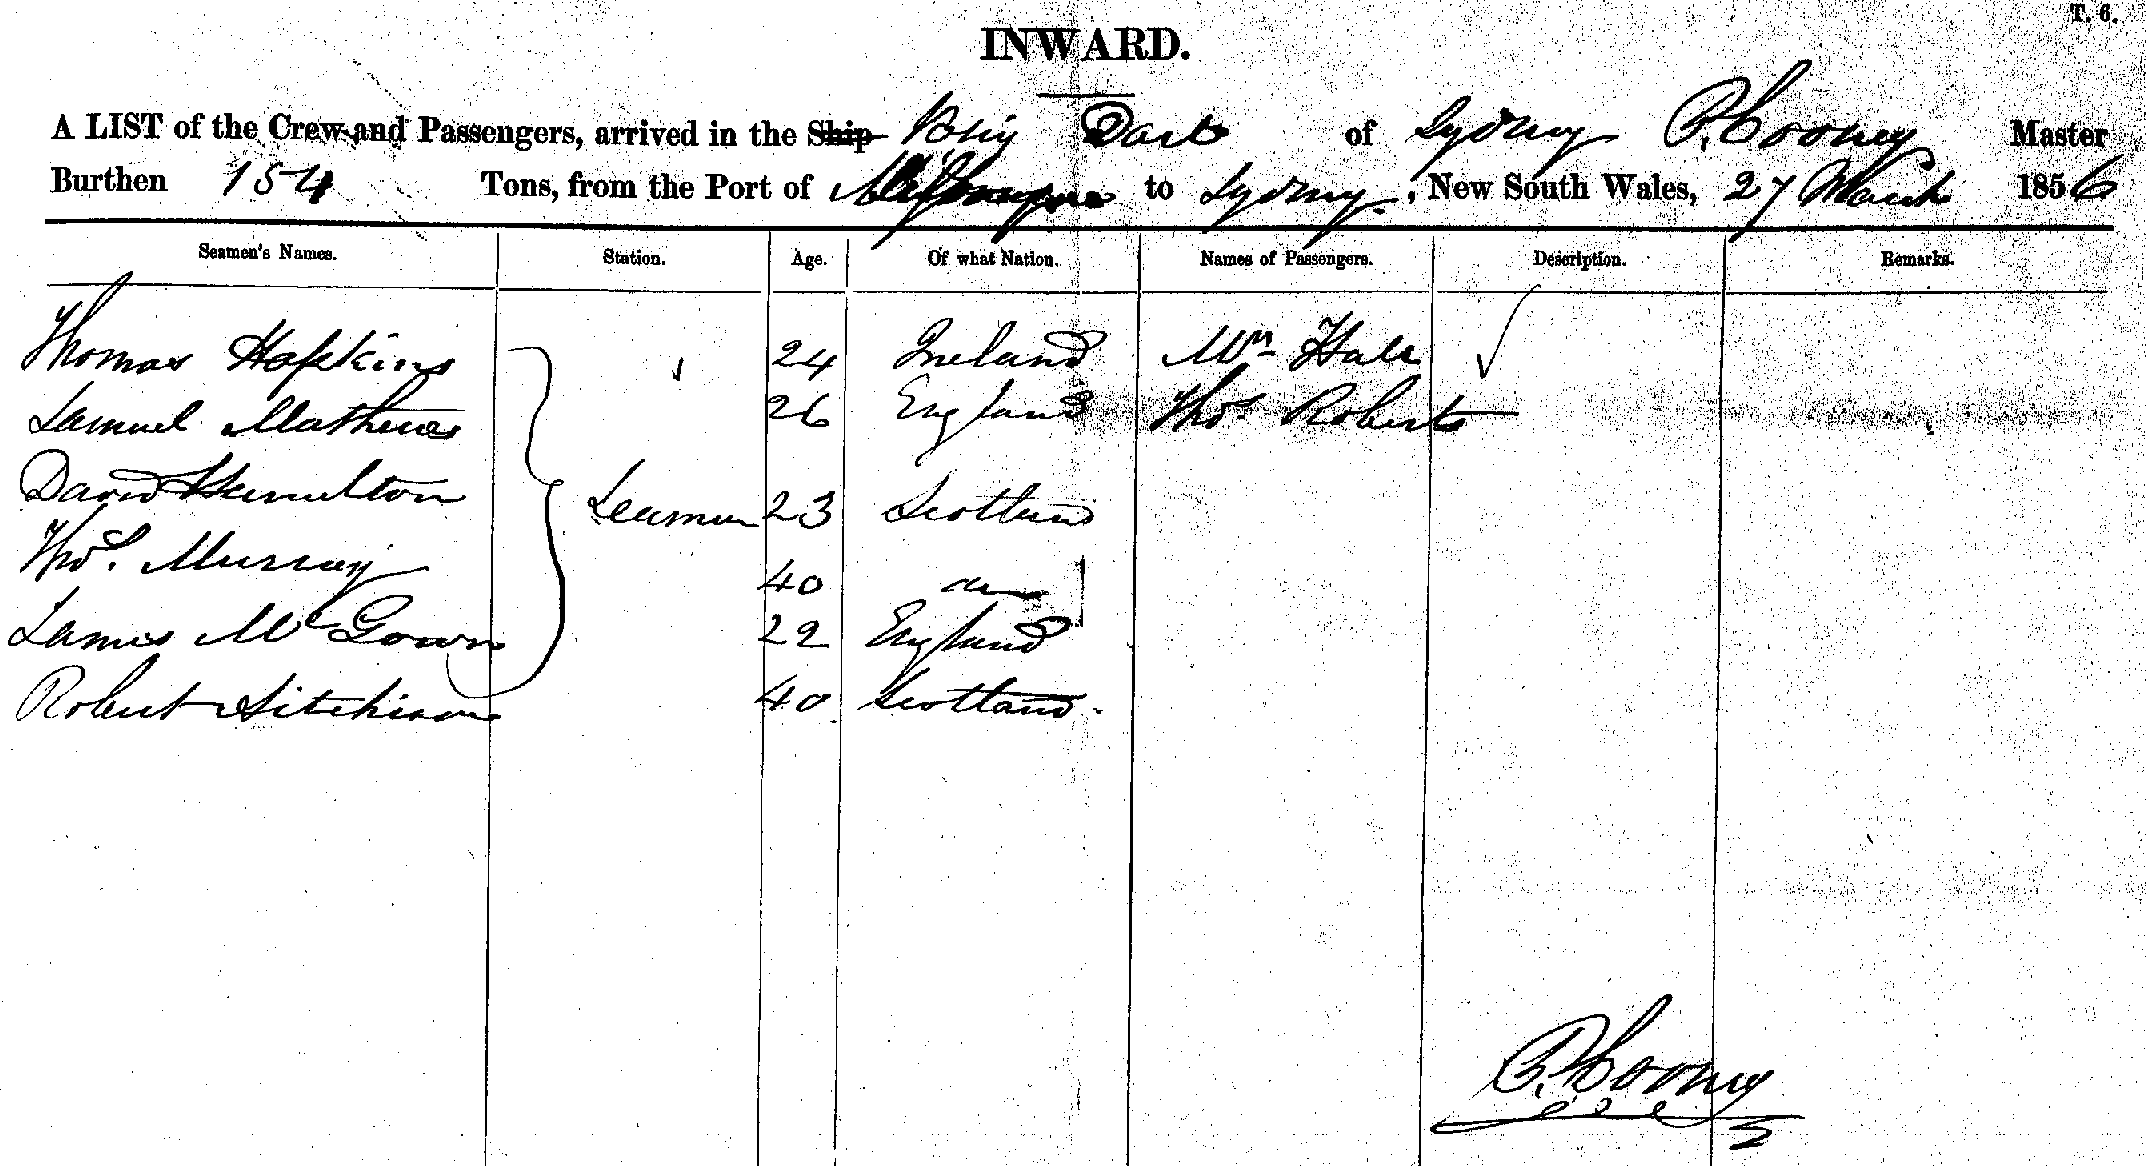 T. 6.
INWARD.
A LIST of the Crew and Passengers, arrived in the Ship Brig Dart of Sydney P. Cooney Master
Burthen 154 Tons, from the Port of Melbourne to Sydney, New South Wales, 27 March 1856
Seamen's Names. Station. Age. Of what Nation. Names of Passengers. Description. Remarks.
Thomas Hopkins 24 Ireland Wm Hall
Samuel Mathews 26 England Thos Roberts
David Hamilton Seaman 23 Scotland
Thos. Murray 40 do
James Mc Gown 22 England
Robert Aitchison 40 Scotland.
P. Cooney